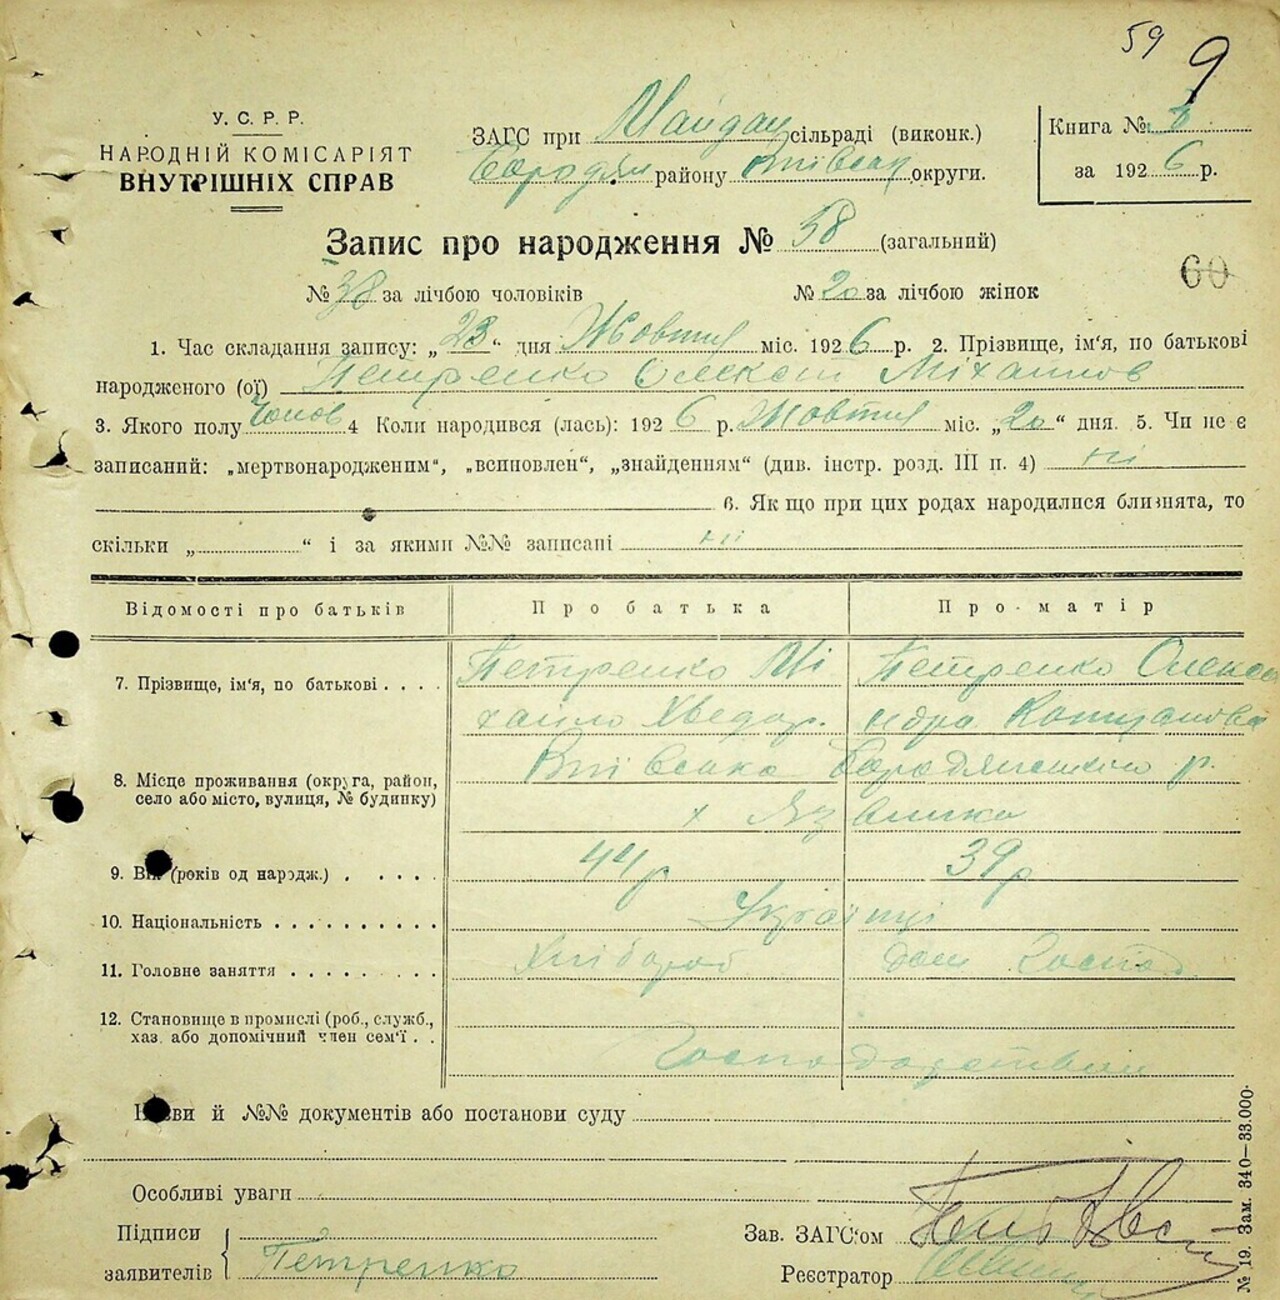 59 9
У. С. Р. Р.
НАРОДНІЙ КОМІСАРІЯТ
ВНУТРІШНІХ СПРАВ
ЗАГС при Майдан сільраді (виконк.)
Бородян району Київськ округи.
Книга №
за 1926 р.
Запис про народження № 58 (загальний)
60
№ 38 за лічбою чоловіків № 20 за лічбою жінок
1. Час складання запису: „23“ дня Жовтня міс. 1926 р. 2. Прізвище, ім'я, по батькові
народженого (ої) Петренко Олексій Міхайлов
3. Якого полу Чолов 4 Коли народився (лась): 1926 р. Жовтня міс. „20“ дня. 5. Чи не є
записаний: „мертвонародженим“, „всиновлен“, „знайденням“ (див. інстр. розд. III п. 4) ні
6. Як що при цих родах народилися близнята, то
скільки „ “ і за якими №№ записані ні
Відомості про батьків Про батька Про матір
7. Прізвище, ім'я, по батькові . . . . Петренко Мі Петренко Олекса
хайло Хведор. ндра
8. Місце проживання (округа, район, Київська Бородянського р.
село або місто, вулиця, № будинку) х Язвинка
9. Вік (років од народж.) . . . . . 44 р 39 р
10. Національність . . . . . . . . . . Українці
11. Головне заняття . . . . . . . . Хлібороб дом господ
12. Становище в промислі (роб., служб.,
хаз. або допомічний член сем'ї . . Господарством
Назви й №№ документів або постанови суду
Особливі уваги
Підписи
заявителів Петренко
Зав. ЗАГС'ом
Реєстратор
№ 19. Зам. 340—33.000.